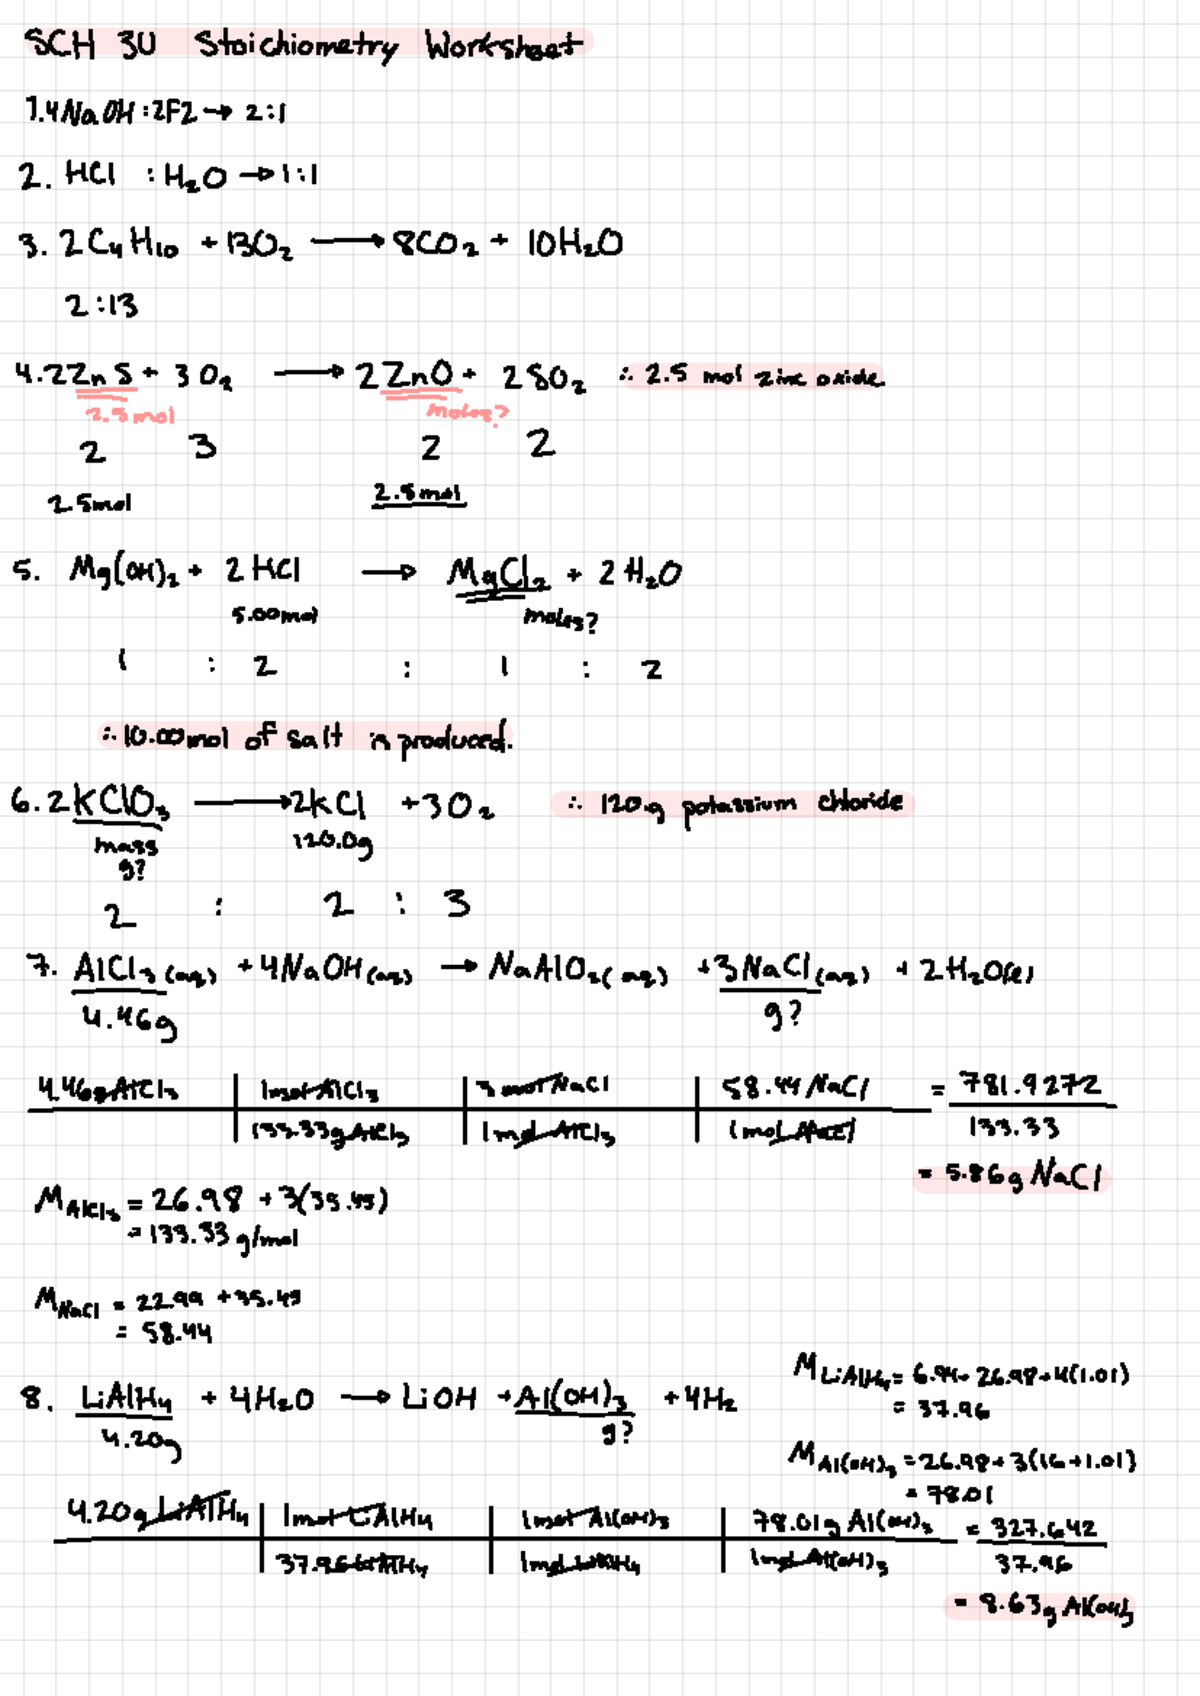 SCH 3U Stoichiometry Worksheet
1.4NaOH:2F2→ 2:1
2. HCl : H₂O → 1:1
3. 2C₄H₁₀ + 13O₂ → 8CO₂ + 10H₂O
2:13
4. 2ZnS + 3O₂ → 2ZnO + 2SO₂ ∴ 2.5 mol zinc oxide.
2.5mol moles?
2 3 2 2
2.5mol 2.5mol
5. Mg(OH)₂ + 2HCl → MgCl₂ + 2H₂O
5.00mol moles?
1 : 2 : 1 : 2
∴ 10.00mol of salt is produced.
6. 2KClO₃ → 2KCl + 3O₂ ∴ 120.g potassium chloride
mass 120.0g
g?
2 : 2 : 3
7. AlCl₃(aq) + 4NaOH(aq) → NaAlO₂(aq) + 3NaCl(aq) + 2H₂O(l)
4.46g g?
4.46g AlCl₃ 1mol AlCl₃ 3 mol NaCl 58.44 NaCl = 781.9272
133.33g AlCl₃ 1mol AlCl₃ 1mol NaCl 133.33
= 5.86g NaCl
M AlCl₃ = 26.98 + 3(35.45)
= 133.33 g/mol
M NaCl = 22.99 + 35.45
= 58.44
M LiAlH₄ = 6.94 + 26.98 + 4(1.01)
= 37.96
8. LiAlH₄ + 4H₂O → LiOH + Al(OH)₃ + 4H₂
4.20g g?
M Al(OH)₃ = 26.98 + 3(16+1.01)
= 78.01
4.20g LiAlH₄ 1mol LiAlH₄ 1mol Al(OH)₃ 78.01g Al(OH)₃ = 327.642
37.96 LiAlH₄ 1mol LiAlH₄ 1mol Al(OH)₃ 37.96
= 8.63g Al(OH)₃